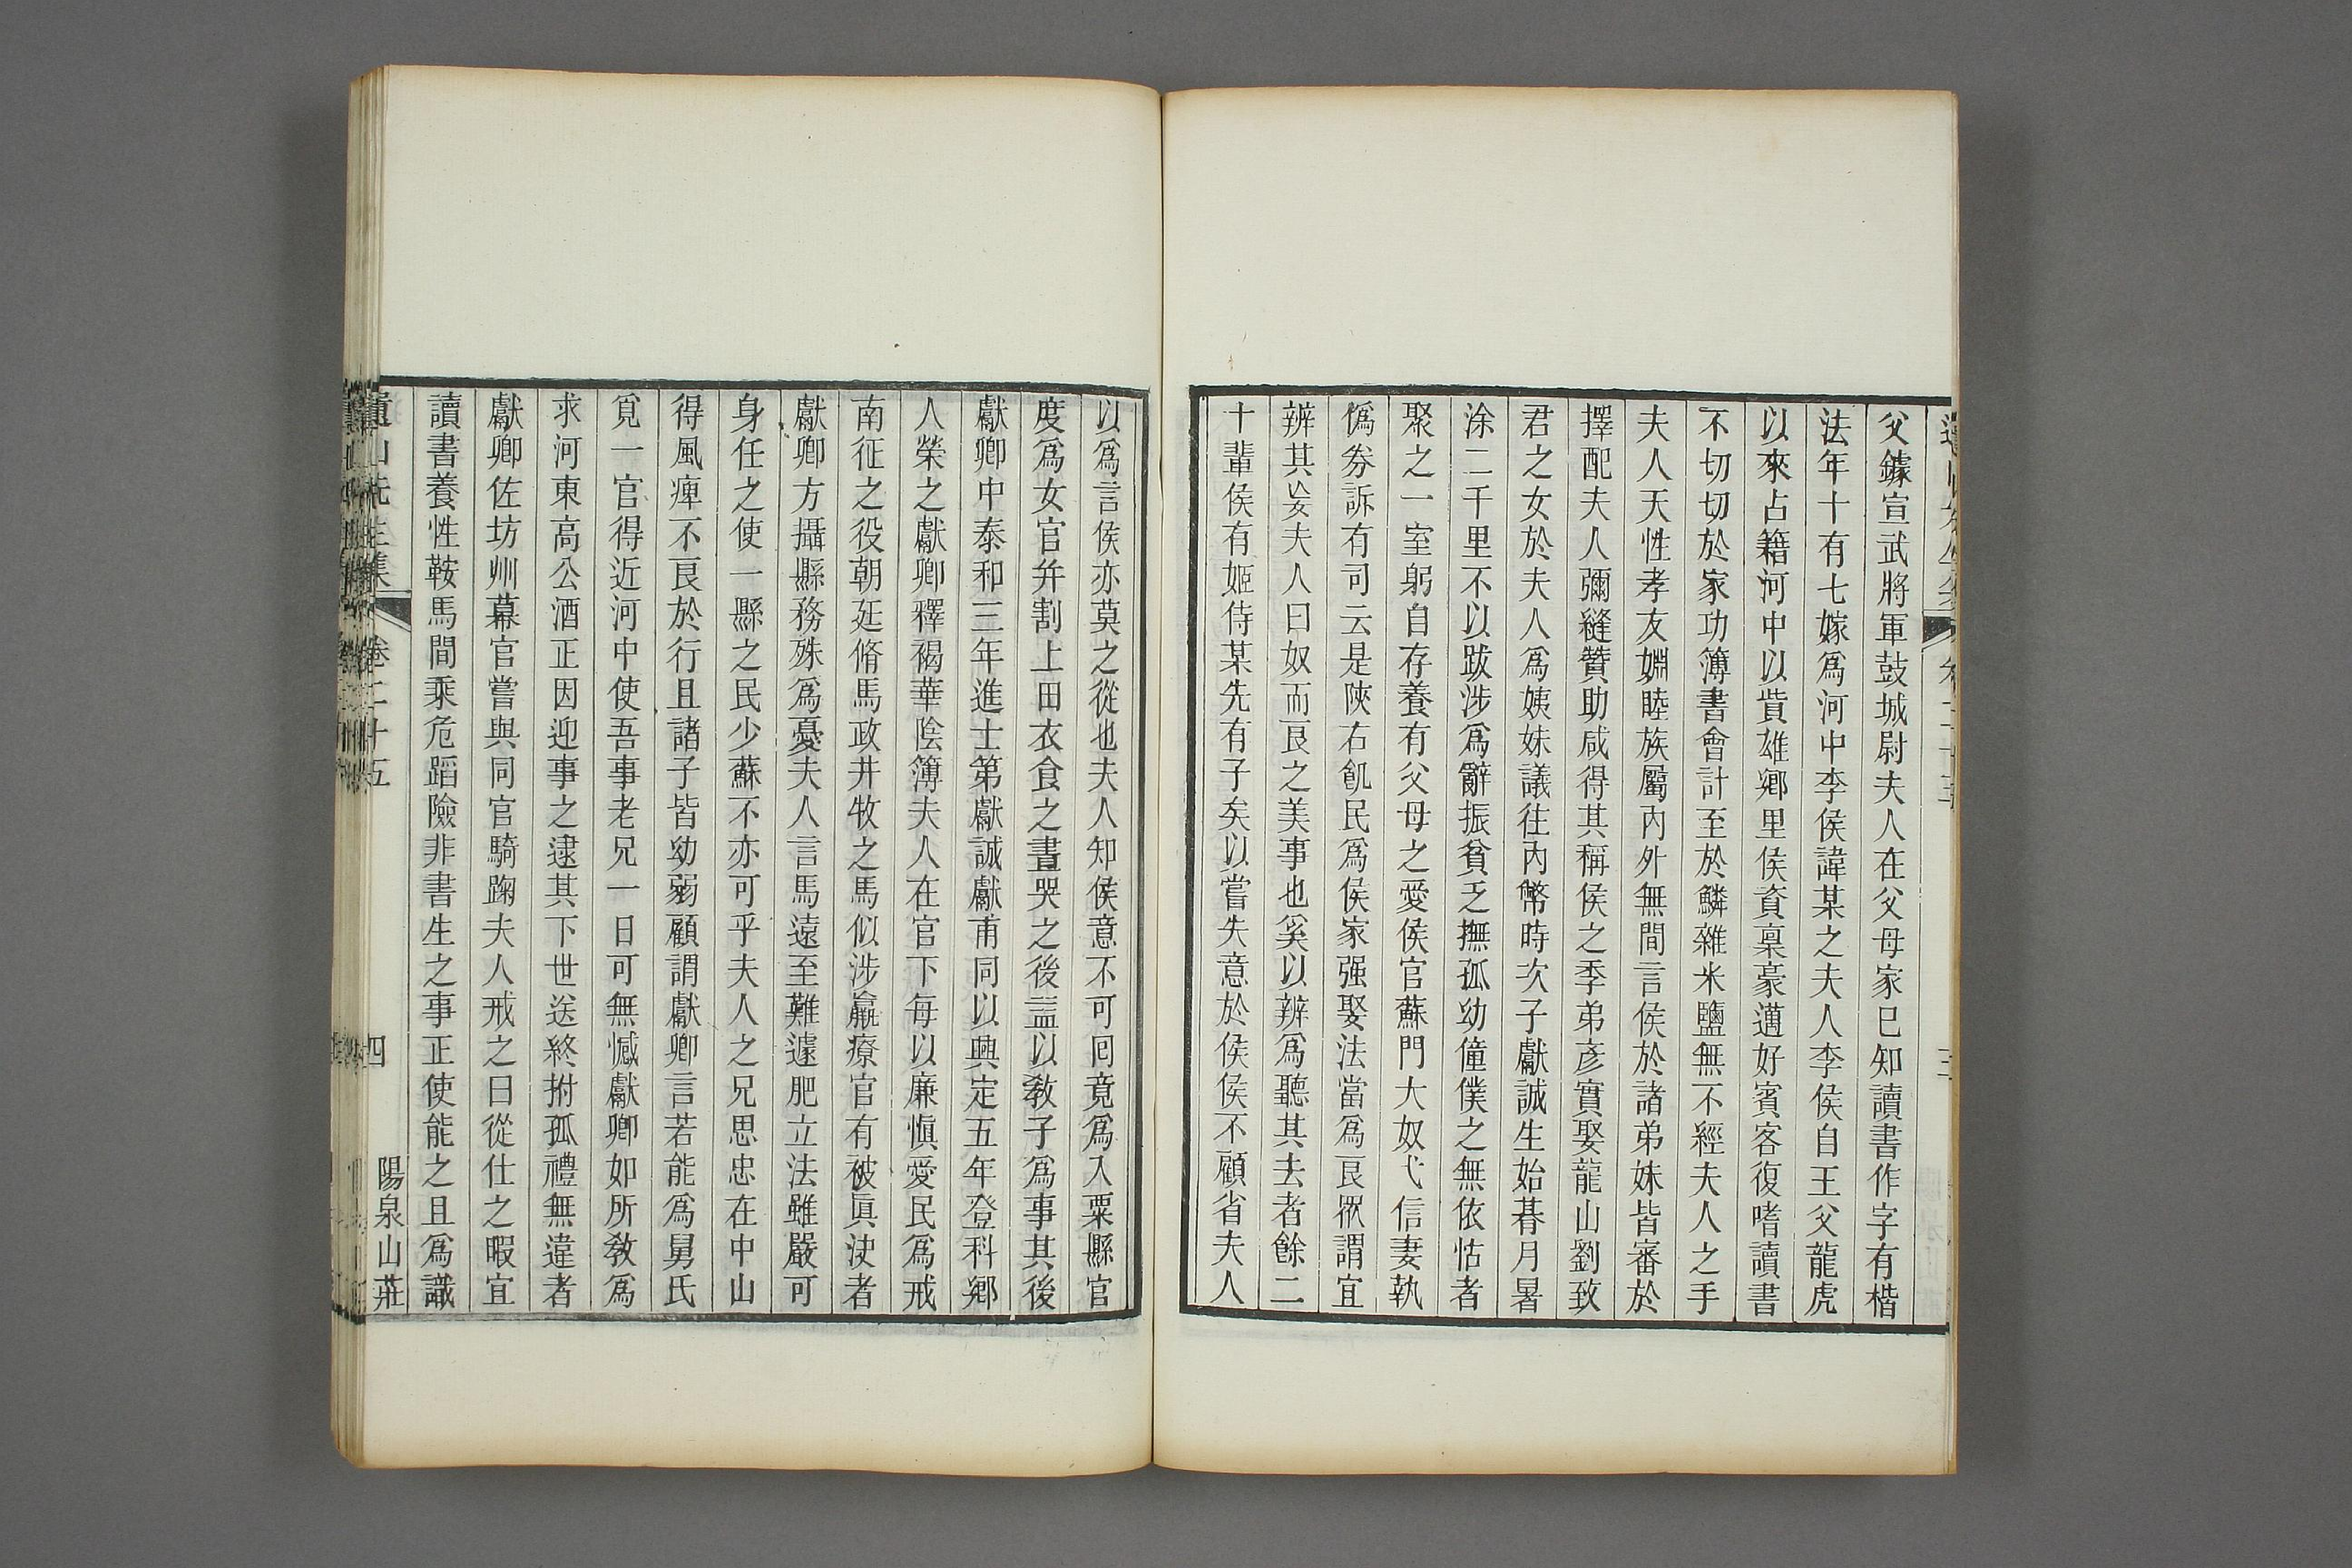 父鐻宣武將軍鼓城尉夫人在父母家巳知讀書作字有楷
法年十有七嫁爲河中李侯諱某之夫人李侯自王父龍虎
以來占籍河中以貲雄鄉里侯資稟豪邁好賓客復嗜讀書
不切切於家功簿書會計至於鱗雜米鹽無不經夫人之手
夫人天性孝友婣睦族屬內外無間言侯於諸弟妹皆審於
擇配夫人彌縫贊助咸得其稱侯之季弟彦實娶龍山劉致
君之女於夫人爲姨妹議往內幣時次子獻誠生始朞月暑
涂二千里不以跋涉爲辭振貧乏撫孤幼僮僕之無依怙者
聚之一室躬自存養有父母之愛侯官蘇門大奴弋信妻執
僞券訴有司云是陝右飢民爲侯家强娶法當爲良掀謂宜
辨其妄夫人曰奴而良之美事也奚以辨爲聽其去者餘二
十輩侯有姬侍某先有子矣以嘗失意於侯侯不顧省夫人
以爲言侯亦莫之從也夫人知侯意不可囘竟爲入粟縣官
度爲女官幷割上田衣食之晝哭之後盖以敎子爲事其後
獻卿中泰和三年進士第獻誠獻甫同以興定五年登科鄉
人榮之獻卿釋褐華陰簿夫人在官下每以廉愼愛民爲戒
南征之役朝廷脩馬政井牧之馬似涉羸瘵官有被眞決者
獻卿方攝縣務殊爲憂夫人言馬遠至難遽肥立法雖嚴可
身任之使一縣之民少蘇不亦可乎夫人之兄思忠在中山
得風痺不良於行且諸子皆幼弱顧謂獻卿言若能爲舅氏
覓一官得近河中使吾事老兄一日可無憾獻卿如所敎爲
求河東高公酒正因迎事之逮其下世送終拊孤禮無違者
獻卿佐坊州幕官嘗與同官騎踘夫人戒之曰從仕之暇宜
讀書養性鞍馬間乘危蹈險非書生之事正使能之且爲識
遺山先生集 卷二十五 四 陽泉山莊